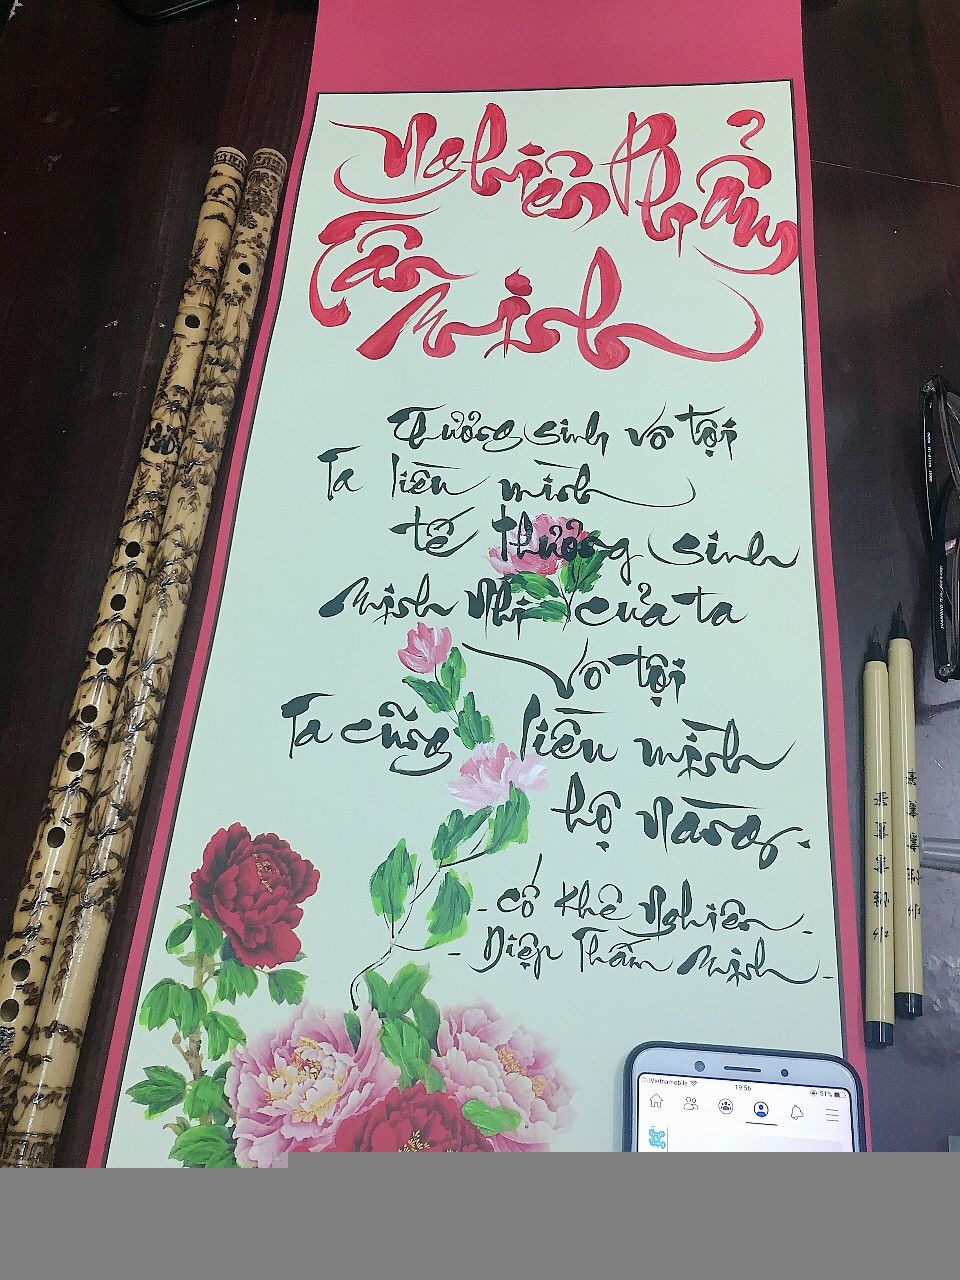 Nghiên Phẩm
Tần
Minh
Thưởng sinh vô tội
Ta liền mình
tế thưởng sinh
Minh Nhi của ta
vô tội
Ta cũng liền mình
hộ nàng.
- Cố Khê Nghiên -
- Diệp Thấm Minh -
Vietnamobile
19:56
51%